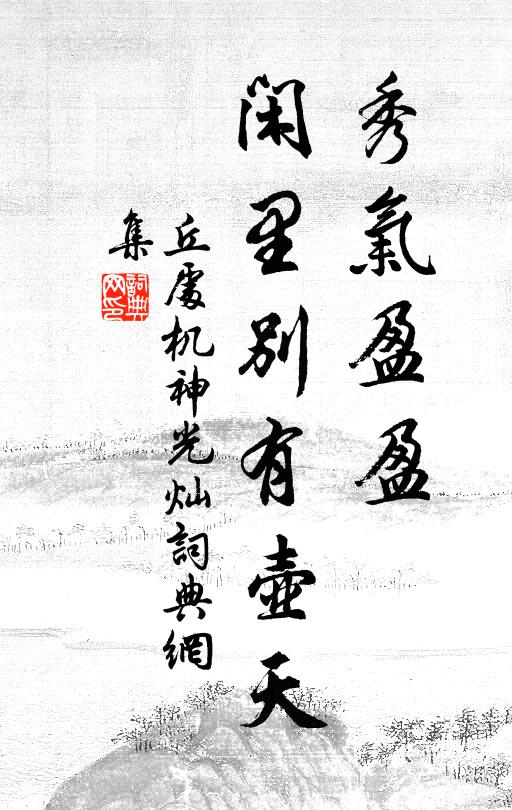 秀氣盈盈
閑里別有壺天
丘處机神光灿詞典網
集
詞典网印